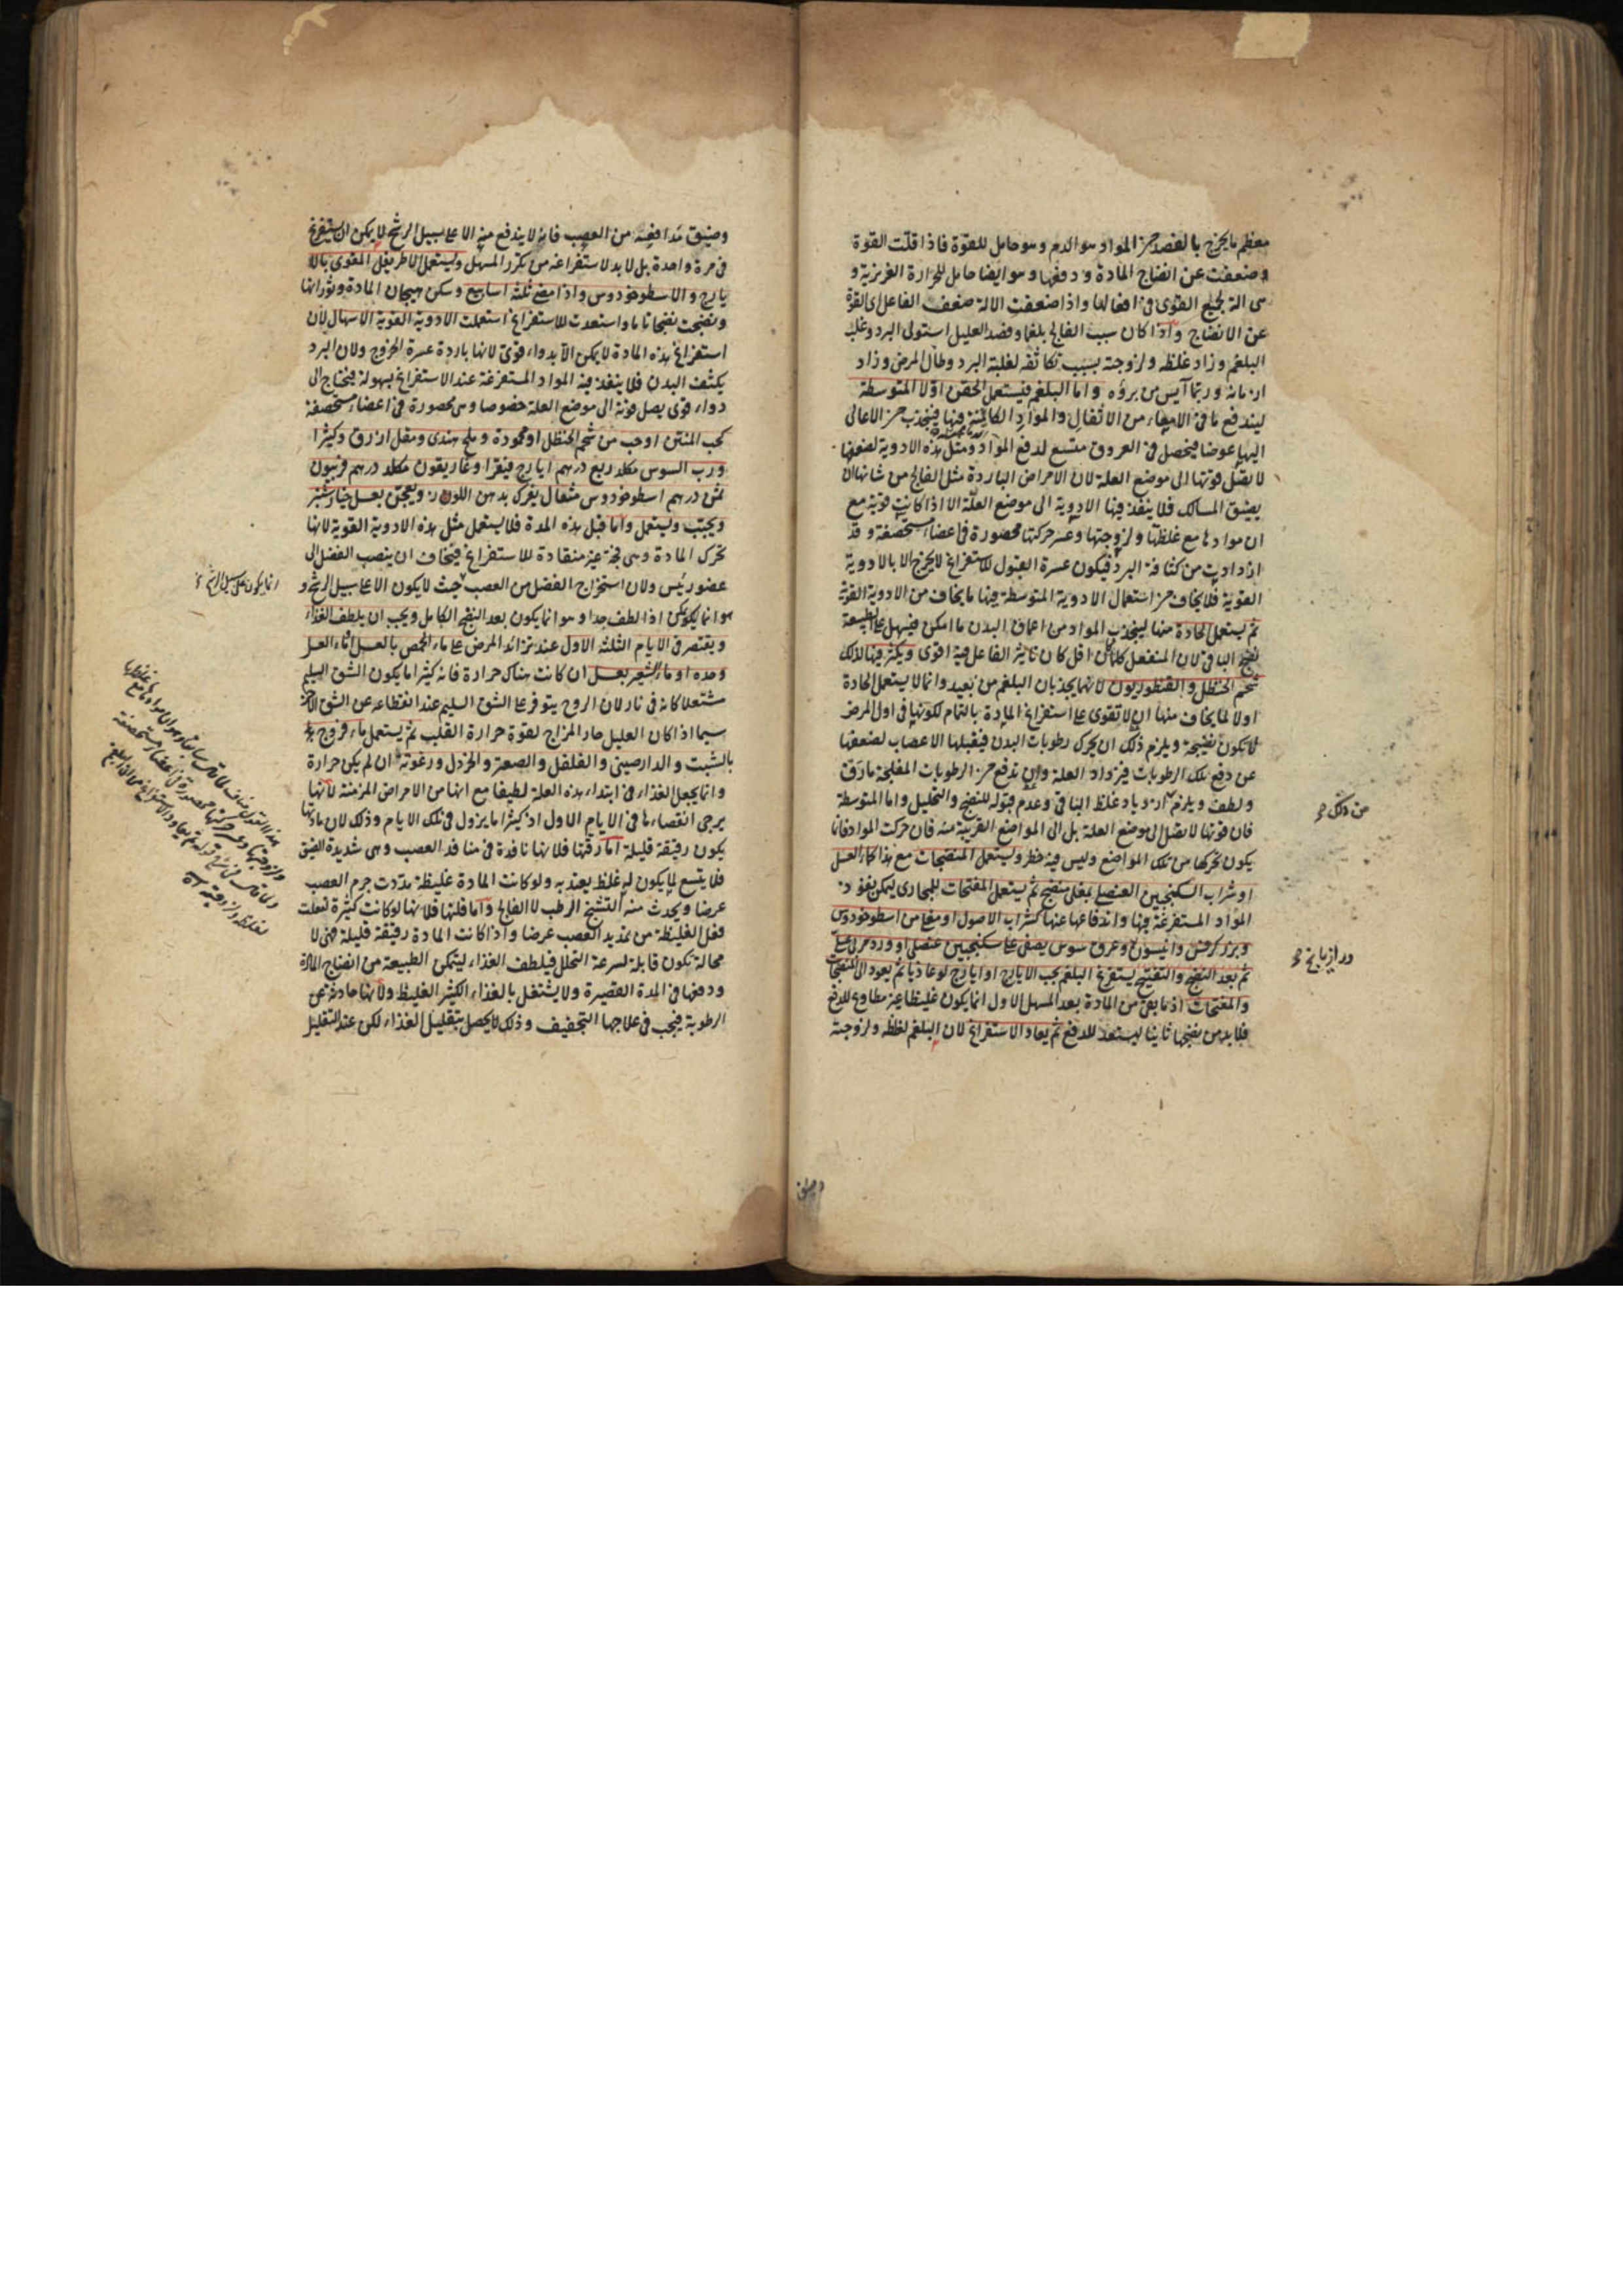 معظم ما يخرج بالفصد من المواد هو الدم وهو حامل للقوة فاذا قلت القوة
وضعفت عن انضاج المادة ودفعها وهو ايضا حامل للحرارة الغريزية و
هى الة لجميع القوى فى افعالها واذا ضعفت الالة ضعف الفاعل اى القوة
عن الانضاج واذا كان سبب الفالج بلغما وفصد العليل استولى البرد وغلب
البلغم وزاد غلظه ولزوجته بسبب تكاثفه لغلبة البرد وطال المرض وزاد
ازمانه وربما آيس من برؤه واما البلغم فيستعمل الحقن اولا المتوسطة
ليندفع ما فى الامعاء من الاثفال والمواد الكائنة فيها فينجذب من الاعالى
اليها عوضا فيحصل فى العروق متسع لدفع المواد ومثل هذه الادوية لضعفها
لا يصل قوتها الى موضع العلة لان الامراض الباردة مثل الفالج من شانها ان
يضيق المسالك فلا ينفذ فيها الادوية الى موضع العلة الا اذا كانت قوية مع
ان موادها مع غلظها ولزوجتها وعسر حركتها محصورة فى اعضاء مستحصفة وقد
ازدادت من كثافة البرد فيكون عسرة القبول للاستفراغ لا يخرج الا بالادوية
القوية فلا يخاف من استعمال الادوية المتوسطة فيها ما يخاف من الادوية القوية
ثم يستعمل الحادة منها لينجذب المواد من اعماق البدن ما امكن فيسهل على الطبيعة
نضج الباقى لان المنفعل كلما كان اقل كان تاثير الفاعل فيه اقوى ويكثر فيها لذلك
شحم الحنظل والقنطوريون لانهما يجذبان البلغم من بعيد وانما لا يستعمل الحادة
اولا لما يخاف منها ان لا تقوى على استفراغ المادة بالتمام لكونها فى اول المرض
لا يكون نضيجة ويلزم ذلك ان يحرك رطوبات البدن فيقبلها الاعصاب لضعفها
عن دفع تلك الرطوبات فيزداد العلة وان تدفع من الرطوبات المفلجة ما رق
ولطف ويلزم ازدياد غلظ الباقى وعدم قبوله للنضج والتحليل واما المتوسطة
فان قوتها لا يصل الى موضع العلة بل الى المواضع القريبة منه فان حركت المواد فانما
يكون تحركها من تلك المواضع وليس فيه خطر ويستعمل المنضجات مع هذا كماء العسل
او شراب السكنجبين العنصلى بمغلى منضج ثم يستعمل المفتحات للمجارى ليمكن نفوذ
المواد المستفرغة فيها واندفاعها عنها كشراب الاصول او مغلى من اسطوخودوس
وبزر كرفس وانيسون وعرق سوس يصفى على سكنجبين عنصلى او ورد مربى عسلى
ثم بعد النضج والتفتيح يستفرغ البلغم بحب الايارج او ايارج لوغاذيا ثم يعود الى المنضجات
والمفتحات اذ ما بقى من المادة بعد المسهل الاول انما يكون غليظا غير مطاوع للدفع
فلا بد من نضجها ثانيا ليستعد للدفع ثم يعاد الاستفراغ لان البلغم لغلظه ولزوجته
من ذلك
ورازيانج
وضيق مدافعه من العصب فانه لا يندفع منه الا على سبيل الرشح لا يمكن ان يستفرغ
فى مرة واحدة بل لا بد لاستفراغه من تكرر المسهل ويستعمل الاطريفل المقوى بالا
يارج والاسطوخودوس واذا مضى ثلثة اسابيع وسكن هيجان المادة وثورانها
ونضجت نضجا تاما واستعدت للاستفراغ استعملت الادوية القوية الاسهال لان
استفراغ هذه المادة لا يمكن الا بدواء قوى لانها باردة عسرة الخروج ولان البرد
يكثف البدن فلا ينفذ فيه المواد المستفرغة عند الاستفراغ بسهولة فيحتاج الى
دواء قوى يصل قوته الى موضع العلة خصوصا وهى محصورة فى اعضاء مستحصفة
كحب المنتن او حب من شحم الحنظل او محمودة وملح هندى ومقل ازرق وكثيرا
ورب السوس مكلد ربع درهم ايارج فيقرا وغاريقون مكلد درهم فربيون
ثمن درهم اسطوخودوس مثقال يفرك بدهن اللوز ويعجن بعسل خيارشنبر
ويحبب ويستعمل واما قبل هذه المدة فلا يستعمل مثل هذه الادوية القوية لانها
تحرك المادة وهى فجة غير منقادة للاستفراغ فيخاف ان ينصب الفضل الى
عضو رئيس ولان استخراج الفضل من العصب حيث لا يكون الا على سبيل الرشح و
هو انما يكون يمكن اذا لطف جدا وهو انما يكون بعد النضج الكامل ويجب ان يلطف الغذاء
ويقتصر فى الايام الثلثة الاول عند تزائد المرض على ماء الحمص بالعسل او ماء العسل
وحده او ماء الشعير بعسل ان كانت هناك حرارة فانه كثيرا ما يكون الشق السليم
مشتعلا كانه فى نار لان الروح يتوفر على الشق السليم عند انقطاعه عن الشق الاخر
سيما اذا كان العليل حار المزاج لقوة حرارة القلب ثم يستعمل ماء فروج
بالشبت والدارصينى والفلفل والصعتر والخردل ورغوته ان لم يكن حرارة
وانما يجعل الغذاء فى ابتداء هذه العلة لطيفا مع انها من الامراض المزمنة لانها
يرجى انقضاءها فى الايام الاول اذ كثيرا ما يزول فى تلك الايام وذلك لان مادتها
يكون رقيقة قليلة اما رقتها فلانها نافذة فى منافذ العصب وهى شديدة الضيق
فلا يتسع لما يكون له غلظ يعتد به ولو كانت المادة غليظة مددت جرم العصب
عرضا ويحدث منه التشنج الرطب لا الفالج واما قلتها فلانها لو كانت كثيرة لفعلت
فعل الغليظة من تمديد العصب عرضا واذا كانت المادة رقيقة قليلة فهى لا
محالة تكون قابلة لسرعة التحلل فيلطف الغذاء ليتمكن الطبيعة من انضاج المادة
ودفعها فى المدة القصيرة ولا يشتغل بالغذاء الكثير الغليظ ولانها حادثة عن
الرطوبة فيجب فى علاجها التجفيف وذلك لا يحصل بتقليل الغذاء لكن عند التقليل
انما يكون على سبيل الرشح